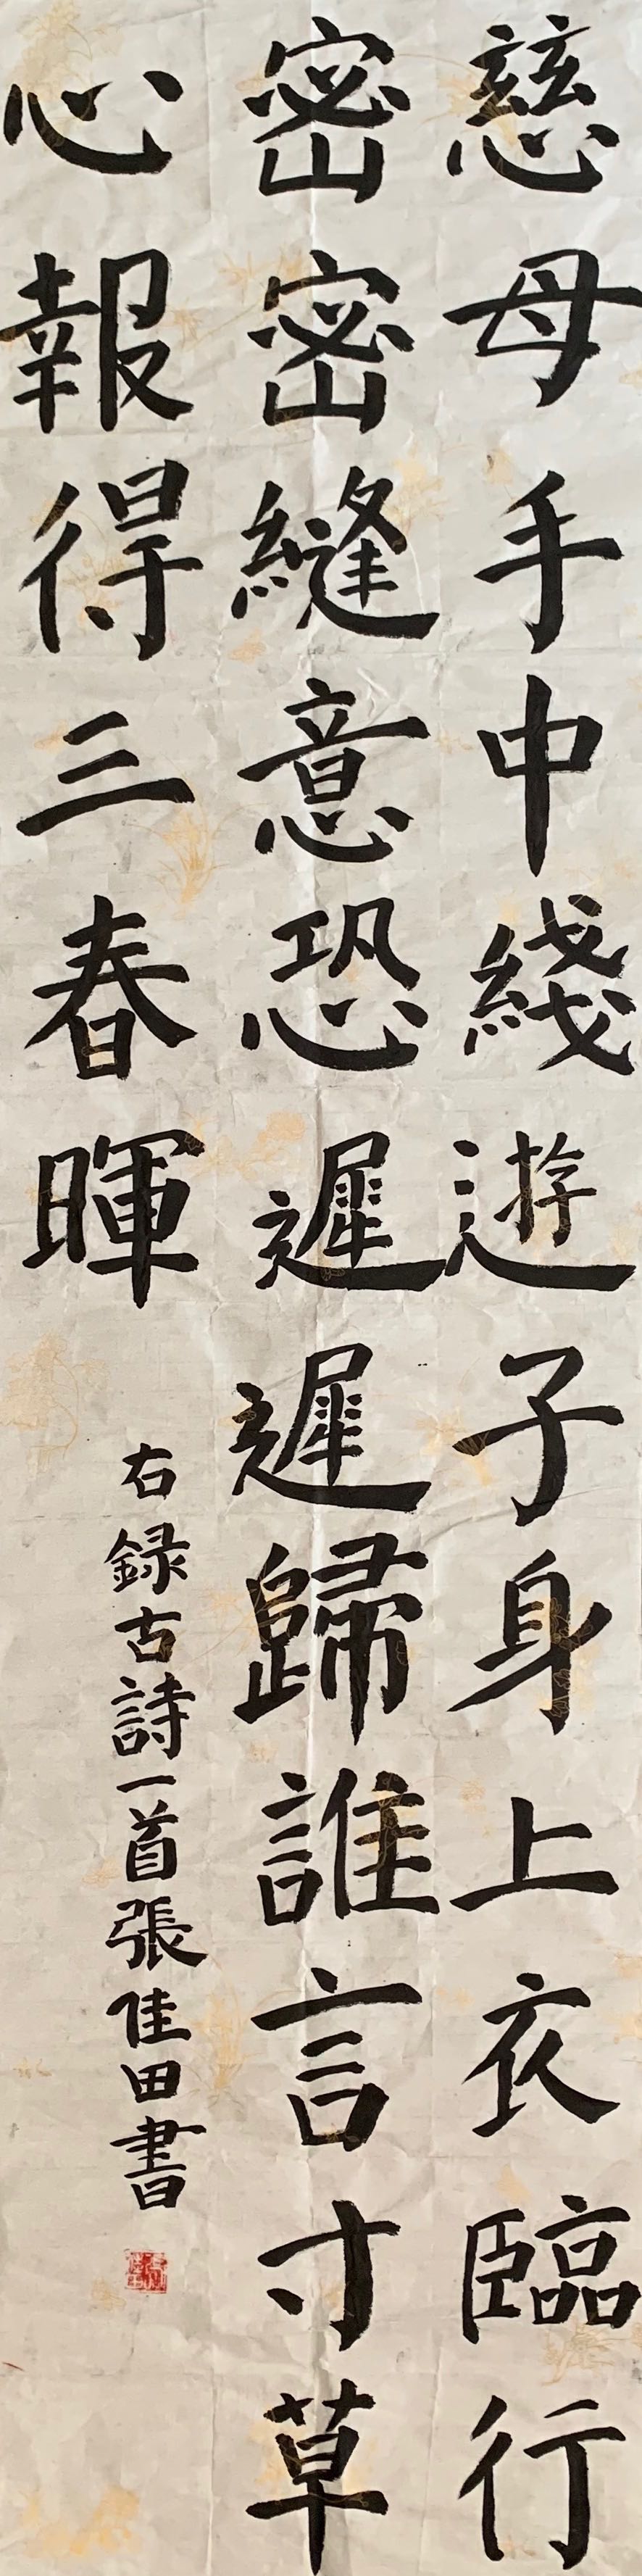 慈母手中綫遊子身上衣臨行
密密縫意恐遲遲歸誰言寸草
心報得三春暉
右録古詩一首張佳田書